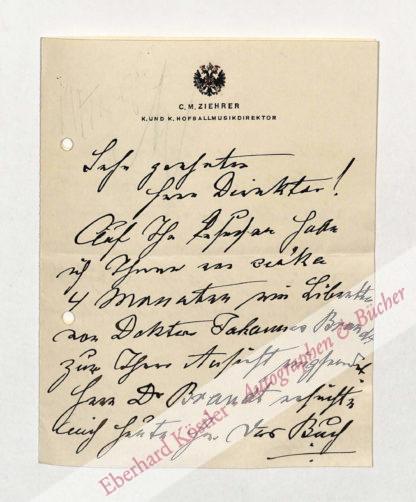 C. M. ZIEHRER
K. UND K. HOFBALLMUSIKDIREKTOR
Sehr geehrter
Herr Direktor!
Auf Ihr Ersuchen habe
ich Ihnen vor zirka
4 Monaten ein Libretto
von Doktor Johannes Brandt
zur Ihrer Ansicht
Herr Dr Brandt ersucht
mich heute das Buch
Eberhard Köstler Autographen & Bücher